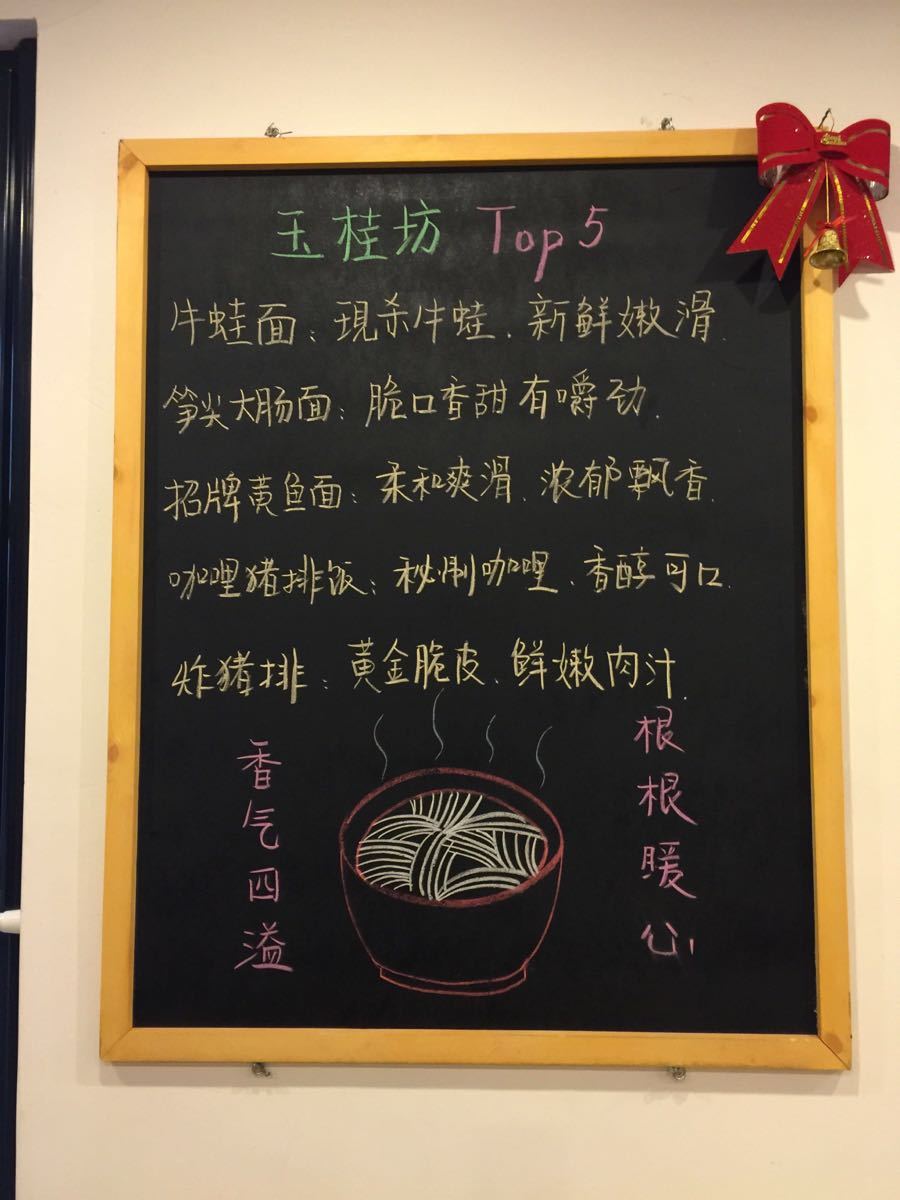 玉桂坊 Top 5
牛蛙面：現杀牛蛙、新鲜嫩滑.
笋尖大肠面：脆口香甜有嚼劲.
招牌黄鱼面：柔和爽滑、浓郁飘香.
咖哩猪排饭：秘制咖哩、香醇可口.
炸猪排：黄金脆皮、鲜嫩肉汁.
香气四溢
根根暖心